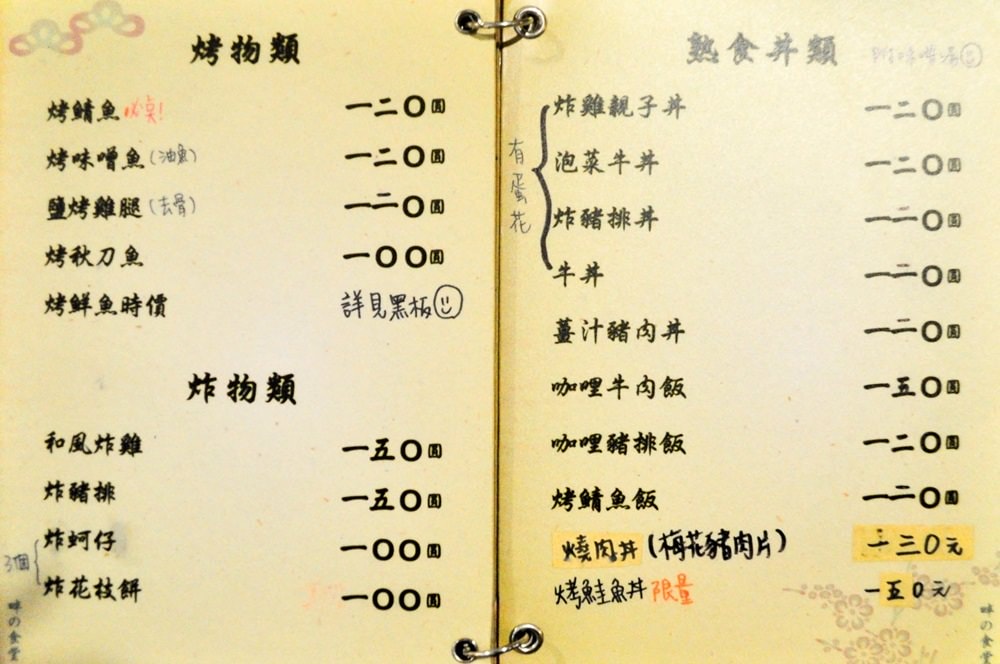 烤物類
烤鯖魚 必點! 一二〇圓
烤味噌魚(油魚) 一二〇圓
鹽烤雞腿(去骨) 一二〇圓
烤秋刀魚 一〇〇圓
烤鮮魚時價 詳見黑板
炸物類
和風炸雞 一五〇圓
炸豬排 一五〇圓
3個
炸蚵仔 一〇〇圓
炸花枝餅 一〇〇圓
畔の食堂
熟食丼類 附味噌湯
有蛋花
炸雞親子丼 一二〇圓
泡菜牛丼 一二〇圓
炸豬排丼 一二〇圓
牛丼 一二〇圓
薑汁豬肉丼 一二〇圓
咖哩牛肉飯 一五〇圓
咖哩豬排飯 一二〇圓
烤鯖魚飯 一二〇圓
燒肉丼(梅花豬肉片) 一三〇元
烤鮭魚丼 限量 一五〇元
畔の食堂